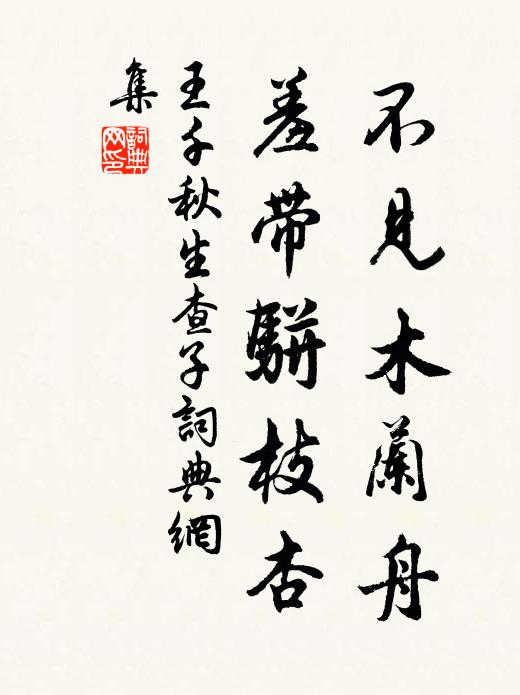 不見木蘭舟
羞帶駢枝杏
王千秋生查子詞典網
集
詞典網印